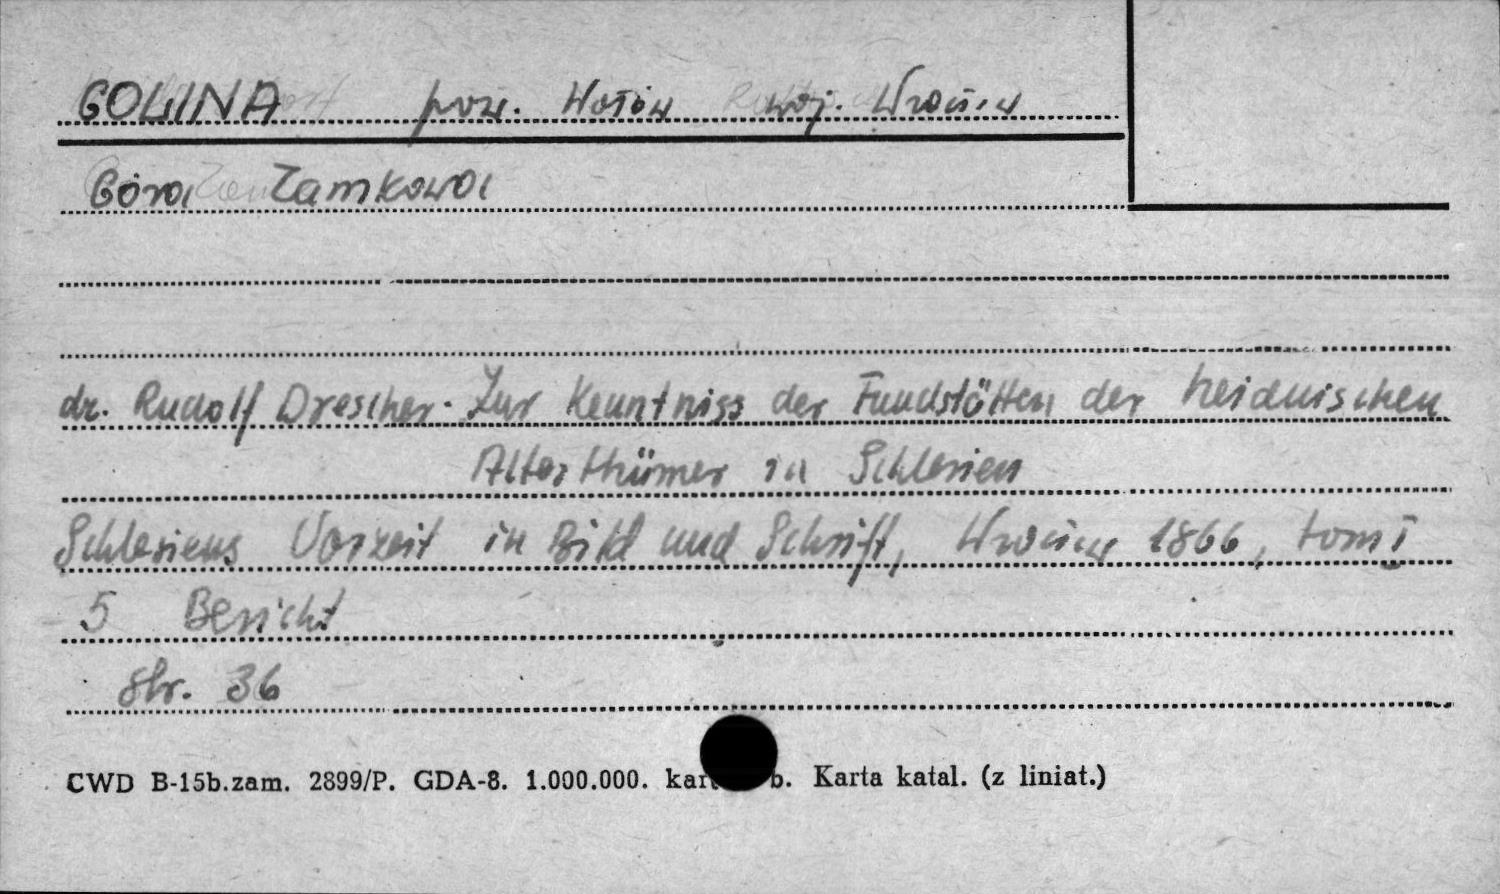 GOLINA pow. Wołów woj. Wrocław
Góra Zamkowa
dr. Rudolf Drescher. Zur Kenntniss der Fundstätten der heidnischen
Alterthümer in Schlesien
Schlesiens Vorzeit in Bild und Schrift, Wrocław 1866, tom I
5 Bericht
str. 36
CWD B-15b.zam. 2899/P. GDA-8. 1.000.000. b. Karta katal. (z liniat.)